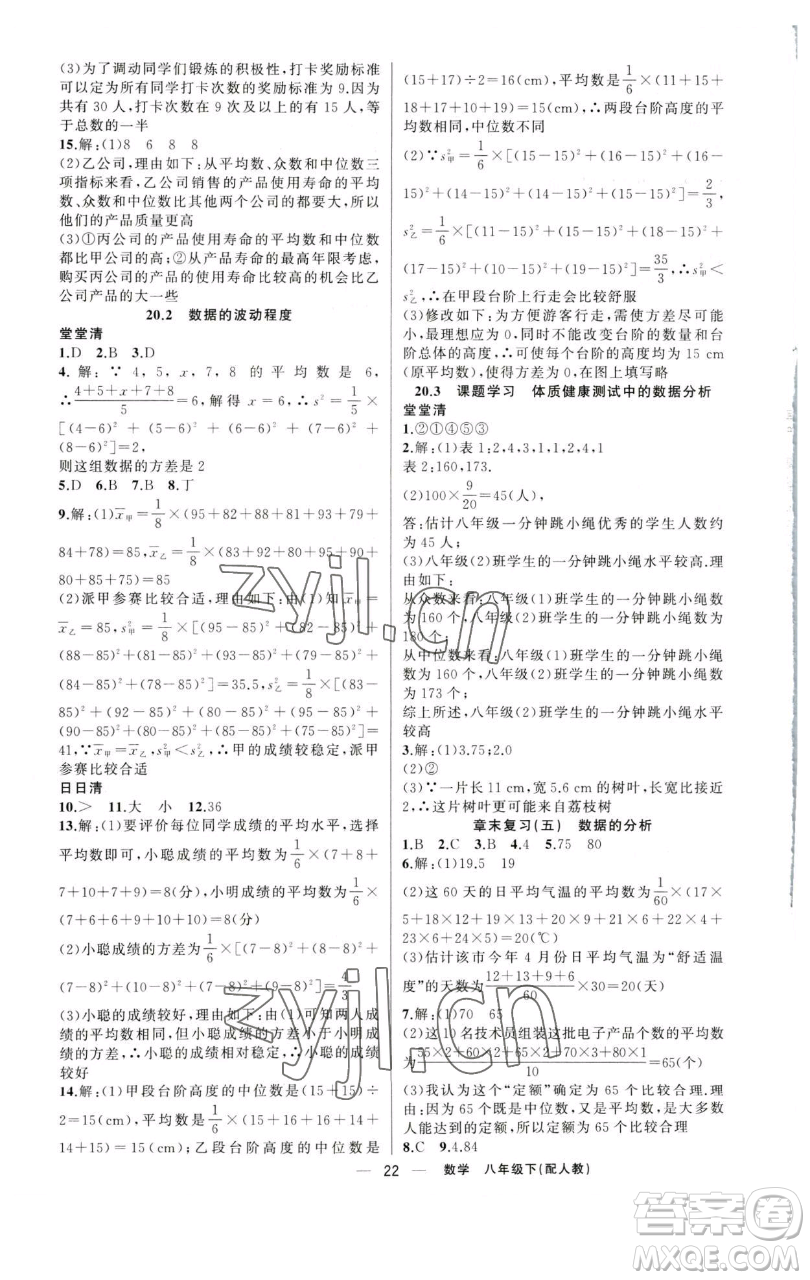 (3)为了调动同学们锻炼的积极性,打卡奖励标准
可以定为所有同学打卡次数的奖励标准为 9.因为
共有 30 人,打卡次数在 9 次及以上的有 15 人,等
于总数的一半
15.解:(1)8 6 8 8
(2)乙公司,理由如下:从平均数、众数和中位数三
项指标来看,乙公司销售的产品使用寿命的平均
数、众数和中位数比其他两个公司的都要大,所以
他们的产品质量更高
(3)①丙公司的产品使用寿命的平均数和中位数
都比甲公司的高;②从产品的最高年限考虑,
购买丙公司的产品的使用寿命比较高的机会比乙
公司产品的大一些
20.2 数据的波动程度
堂堂清
1.D 2.B 3.D
4.解:∵ 4,5,x,7,8 的平均数是 6,
∴(4+5+x+7+8)/5=6,解得 x=6,∴s²=1/5×
[(4-6)²+(5-6)²+(6-6)²+(7-6)²+
(8-6)²]=2,
则这组数据的方差是 2
5.D 6.B 7.B 8.丁
9.解:(1)x̄甲=1/8×(95+82+88+81+93+79+
84+78)=85,x̄乙=1/8×(83+92+80+95+90+
80+85+75)=85
(2)派甲参赛比较合适,理由如下:由(1)知x̄甲=
x̄乙=85,s²甲=1/8×[(95-85)²+(82-85)²+
(88-85)²+(81-85)²+(93-85)²+(79-85)²+
(84-85)²+(78-85)²]=35.5,s²乙=1/8×[(83-
85)²+(92-85)²+(80-85)²+(95-85)²+
(90-85)²+(80-85)²+(85-85)²+(75-85)²]=
41,∵x̄甲=x̄乙,s²甲<s²乙,∴甲的成绩较稳定,派甲
参赛比较合适
日日清
10.> 11.大 小 12.36
13.解:(1)要评价每位同学成绩的平均水平,选择
平均数即可,小聪成绩的平均数为1/6×(7+8+
7+10+7+9)=8(分),小明成绩的平均数为1/6
×(7+6+6+9+10+10)=8(分)
(2)小聪成绩的方差为1/6×[(7-8)²+(8-8)²+
(7-8)²+(10-8)²+(7-8)²+(9-8)²]=4/3
(3)小聪的成绩较好,理由如下:由(1)可知两人成
绩的平均数相同,但小聪成绩的方差小于小明成
绩的方差,成绩相对稳定,故小聪的成绩
较好
14.解:(1)甲段台阶高度的中位数是(15+15)÷
2=15(cm),平均数是1/6×(15+16+16+14+
14+15)=15(cm);乙段台阶高度的中位数是
(15+17)÷2=16(cm),平均数是1/6×(11+15+
18+17+10+19)=15(cm),∴两段台阶高度的平
均数相同,中位数不同
(2)∵s²甲=1/6×[(15-15)²+(16-15)²+(16-
15)²+(14-15)²+(14-15)²+(15-15)²]=2/3
,s²乙=1/6×[(11-15)²+(15-15)²+(18-15)²+
(17-15)²+(10-15)²+(19-15)²]=35/3,∴s²甲<
s²乙,∴在甲段台阶上行走会比较舒服
(3)修改如下:为方便游客行走,需使方差尽可能
小,最理想应为 0,同时不能改变台阶的数量和台
阶总体的高度,故可使每个台阶的高度均为 15 cm
(原平均数),使得方差为 0,在图上填写略
20.3 课题学习 体质健康测试中的数据分析
堂堂清
1.②①④⑤③
2.解:(1)表 1:7,4,3,1,1,4,1
表 2:160,173.
(2)100×9/20=45(人),
答:估计八年级一分钟跳小绳优秀的学生人数约
为 45 人;
(3)八年级(2)班学生的一分钟跳小绳水平较高.理
由如下:
从众数来看:八年级(1)班学生的一分钟跳小绳众
数为 160 个,八年级(2)班学生的一分钟跳小绳众数为
180 个;
从中位数来看:八年级(1)班学生的一分钟跳小绳
中位数为 160 个,八年级(2)班学生的一分钟跳小绳中位
数为 173 个;
综上所述,八年级(2)班学生的一分钟跳小绳水平
较高
3.解:(1)3.75;2.0
(2)②
(3)∵一片长 11 cm,宽 5.6 cm 的树叶,长宽比接近
2,∴这片树叶更可能来自荔枝树
章末复习(五) 数据的分析
1.B 2.C 3.B 4.4 5.75 80
6.解:(1)19.5 19
(2)这 60 天的日平均气温的平均数为1/60×(17×
5+18×12+19×13+20×9+21×6+22×4+
23×6+24×5)=20(℃)
(3)估计该市今年 4 月份日平均气温为“舒适温
度”的天数为(12+13+9+6)/60×30=20(天)
7.解:(1)70 65
(2)这 10 名技术员组装这批电子产品个数的平均数
为(55×2+60×2+65×2+70×3+80×1)/10=65(个)
(3)我认为这个“定额”为 65 个比较合理.
理由:因为 65 既是中位数,又是平均数,是大多数
人能达到的定额,故定额为 65 个比较合理
8.C 9.4.84
22 数学 八年级下(配人教)
zyjl.cn
zyjl.cn
答案圈
MXQE.COM